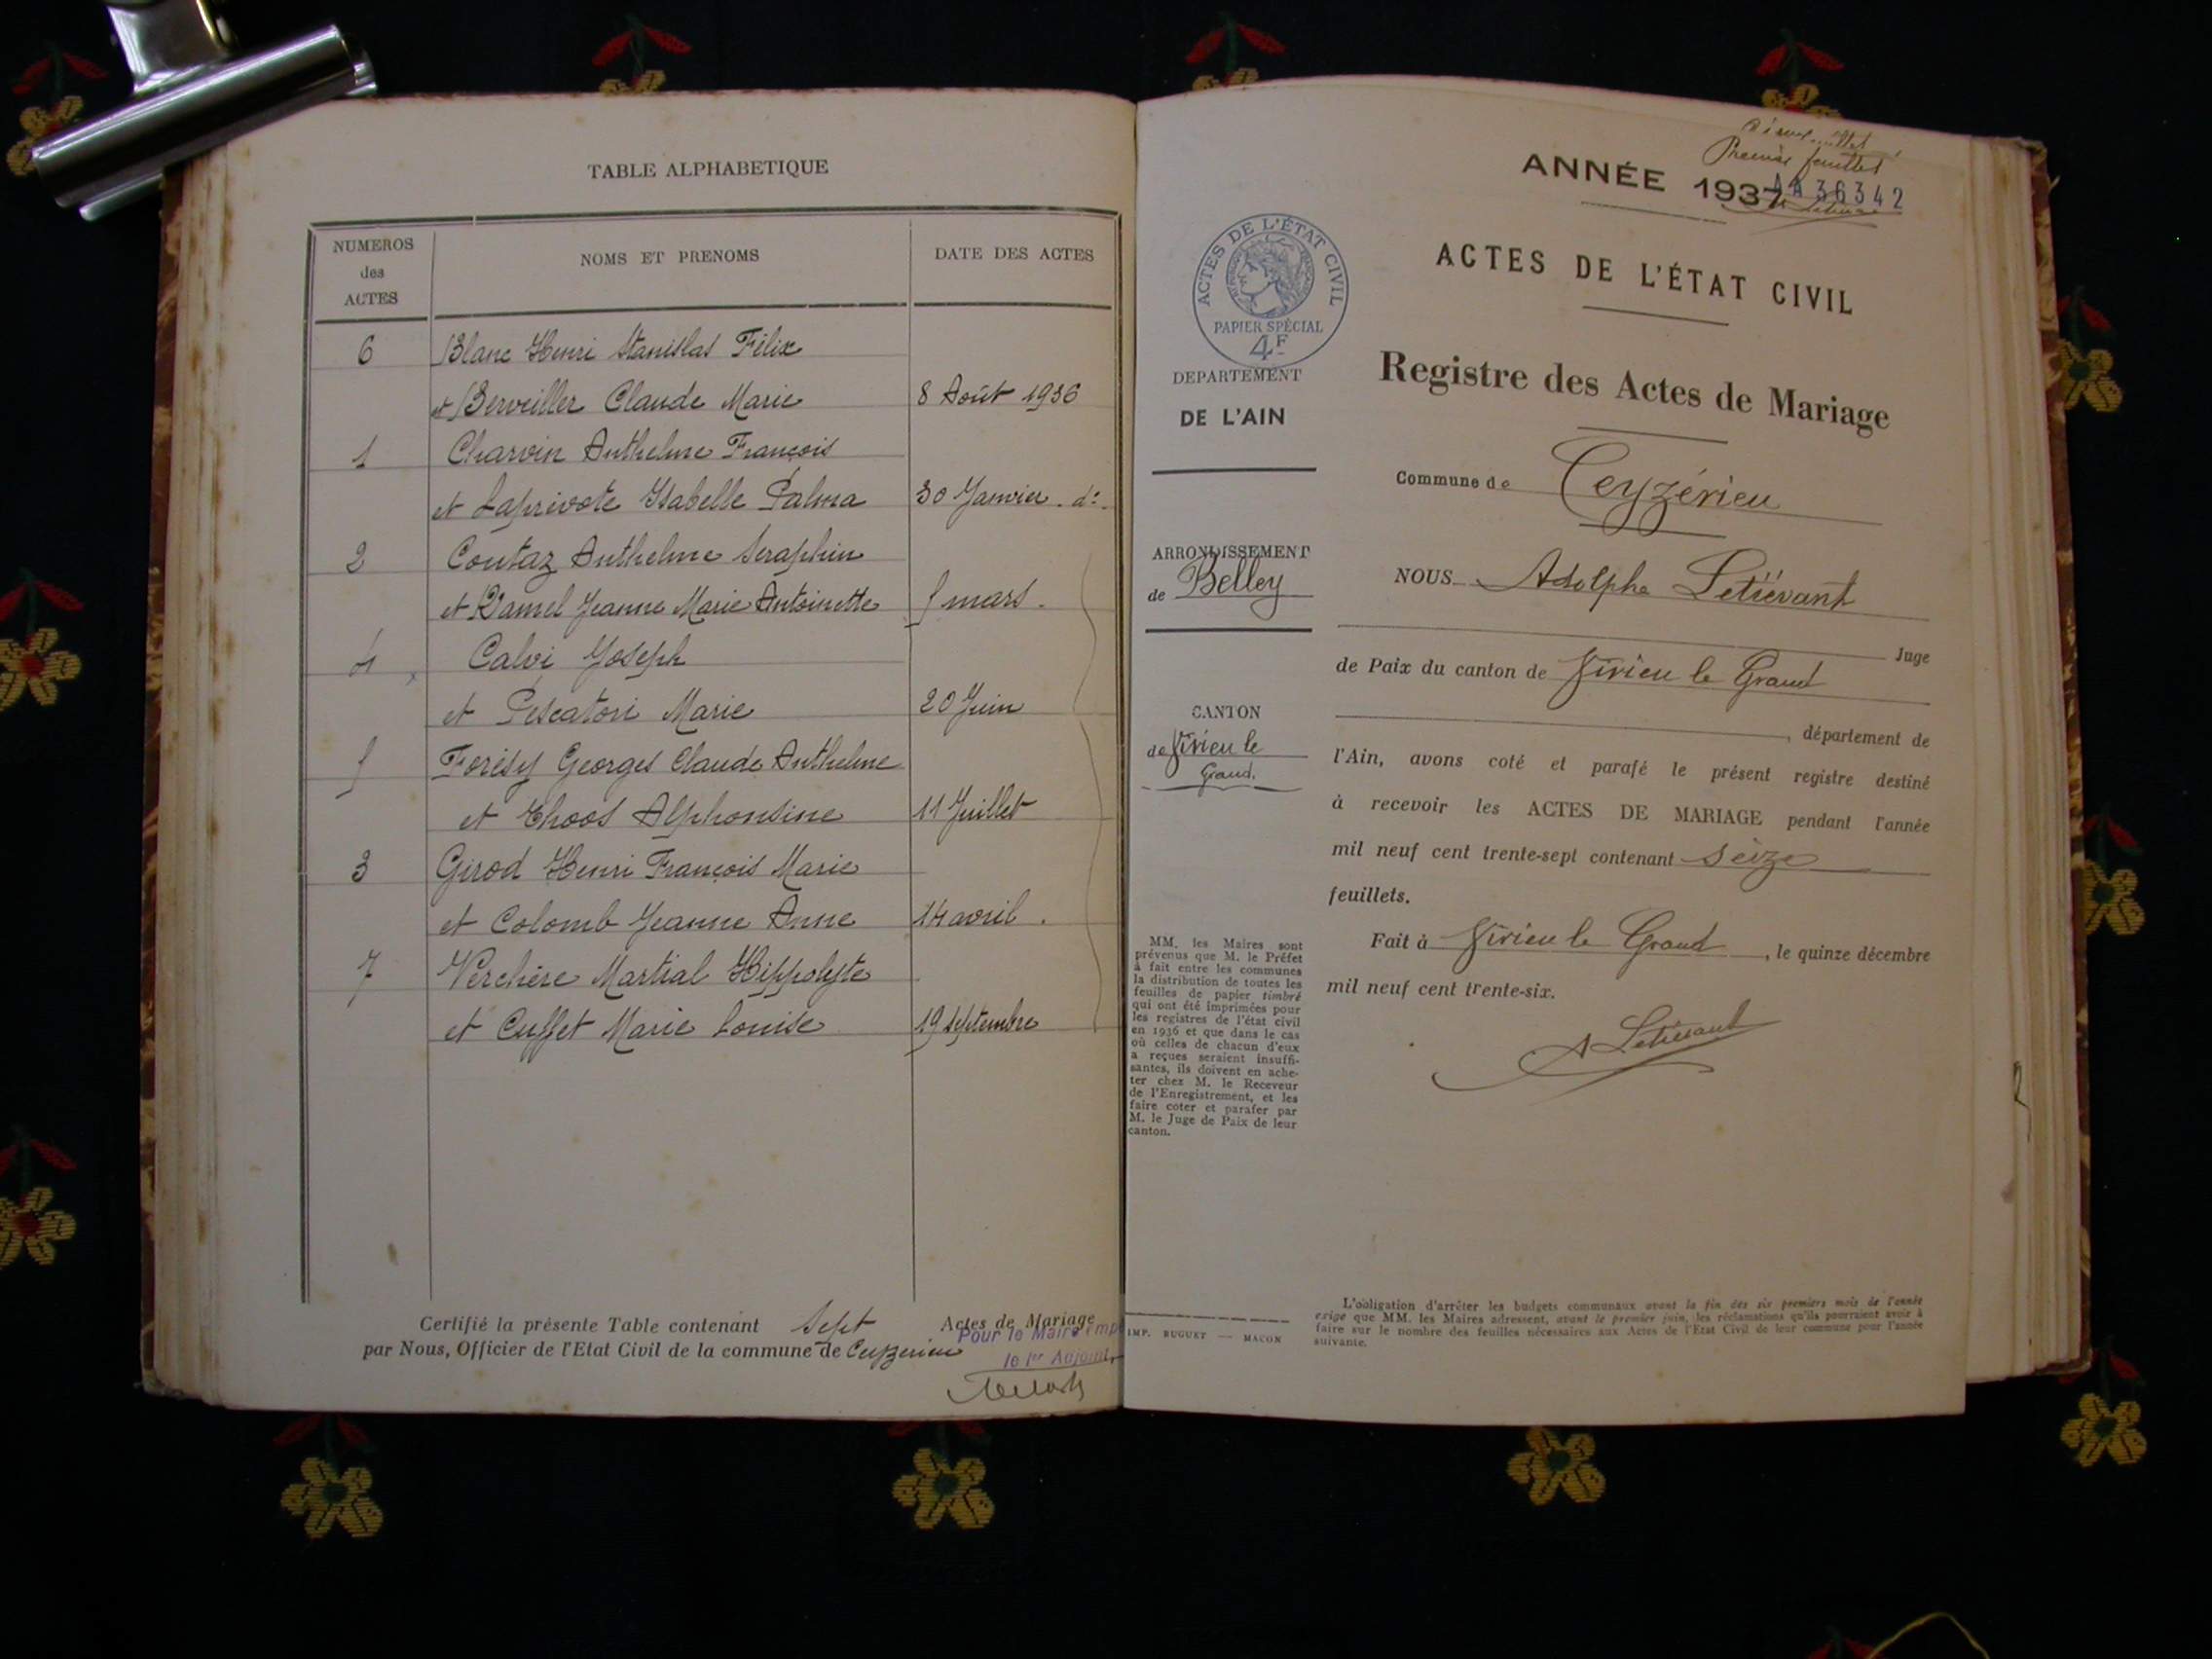 TABLE ALPHABETIQUE
NUMEROS
des
ACTES
NOMS ET PRENOMS
DATE DES ACTES
6 Blanc Henri Stanislas Félix
et Berveiller Claude Marie 8 Août 1936
1 Charvin Anthelme François
et Laprivote Ysabelle Palma 30 Janvier d°
2 Coutaz Anthelme Seraphin
et Ramel Jeanne Marie Antoinette 5 mars
4 Calvi Joseph
et Pescatori Marie 20 Juin
5 Forésy Georges Claude Anthelme
et Choos Alphonsine 11 Juillet
3 Girod Henri François Marie
et Colomb Jeanne Anne 14 avril
7 Verchère Martial Hippolyte
et Cuffet Marie Louise 19 septembre
Certifié la présente Table contenant sept Actes de Mariage
par Nous, Officier de l'Etat Civil de la commune de Ceyzerieu
Pour le Maire emp
le 1er Adjoint
Premier feuillet
ANNÉE 1937
AA 36342
ACTES DE L'ÉTAT CIVIL
PAPIER SPÉCIAL
4F
ACTES DE L'ÉTAT CIVIL
Registre des Actes de Mariage
DEPARTEMENT
DE L'AIN
Commune de Ceyzérieu
ARRONDISSEMENT
de Belley
NOUS Adolphe Letiévant
Juge
de Paix du canton de Virieu le Grand
CANTON
de Virieu le
Grand.
, département de
l'Ain, avons coté et parafé le présent registre destiné
à recevoir les ACTES DE MARIAGE pendant l'année
mil neuf cent trente-sept contenant seize
feuillets.
Fait à Virieu le Grand, le quinze décembre
mil neuf cent trente-six.
A Letiévant
MM. les Maires sont
prévenus que M. le Préfet
à fait entre les communes
la distribution de toutes les
feuilles de papier timbré
qui ont été imprimées pour
les registres de l'état civil
en 1936 et que dans le cas
où celles de chacun d'eux
a reçues seraient insuffi-
santes, ils doivent en ache-
ter chez M. le Receveur
de l'Enregistrement, et les
faire coter et parafer par
M. le Juge de Paix de leur
canton.
IMP. BUGUET — MACON
L'obligation d'arrêter les budgets communaux avant la fin des six premiers mois de l'année
exige que MM. les Maires adressent, avant le premier juin, les réclamations qu'ils pourraient avoir à
faire sur le nombre des feuilles nécessaires aux Actes de l'Etat Civil de leur commune pour l'année
suivante.